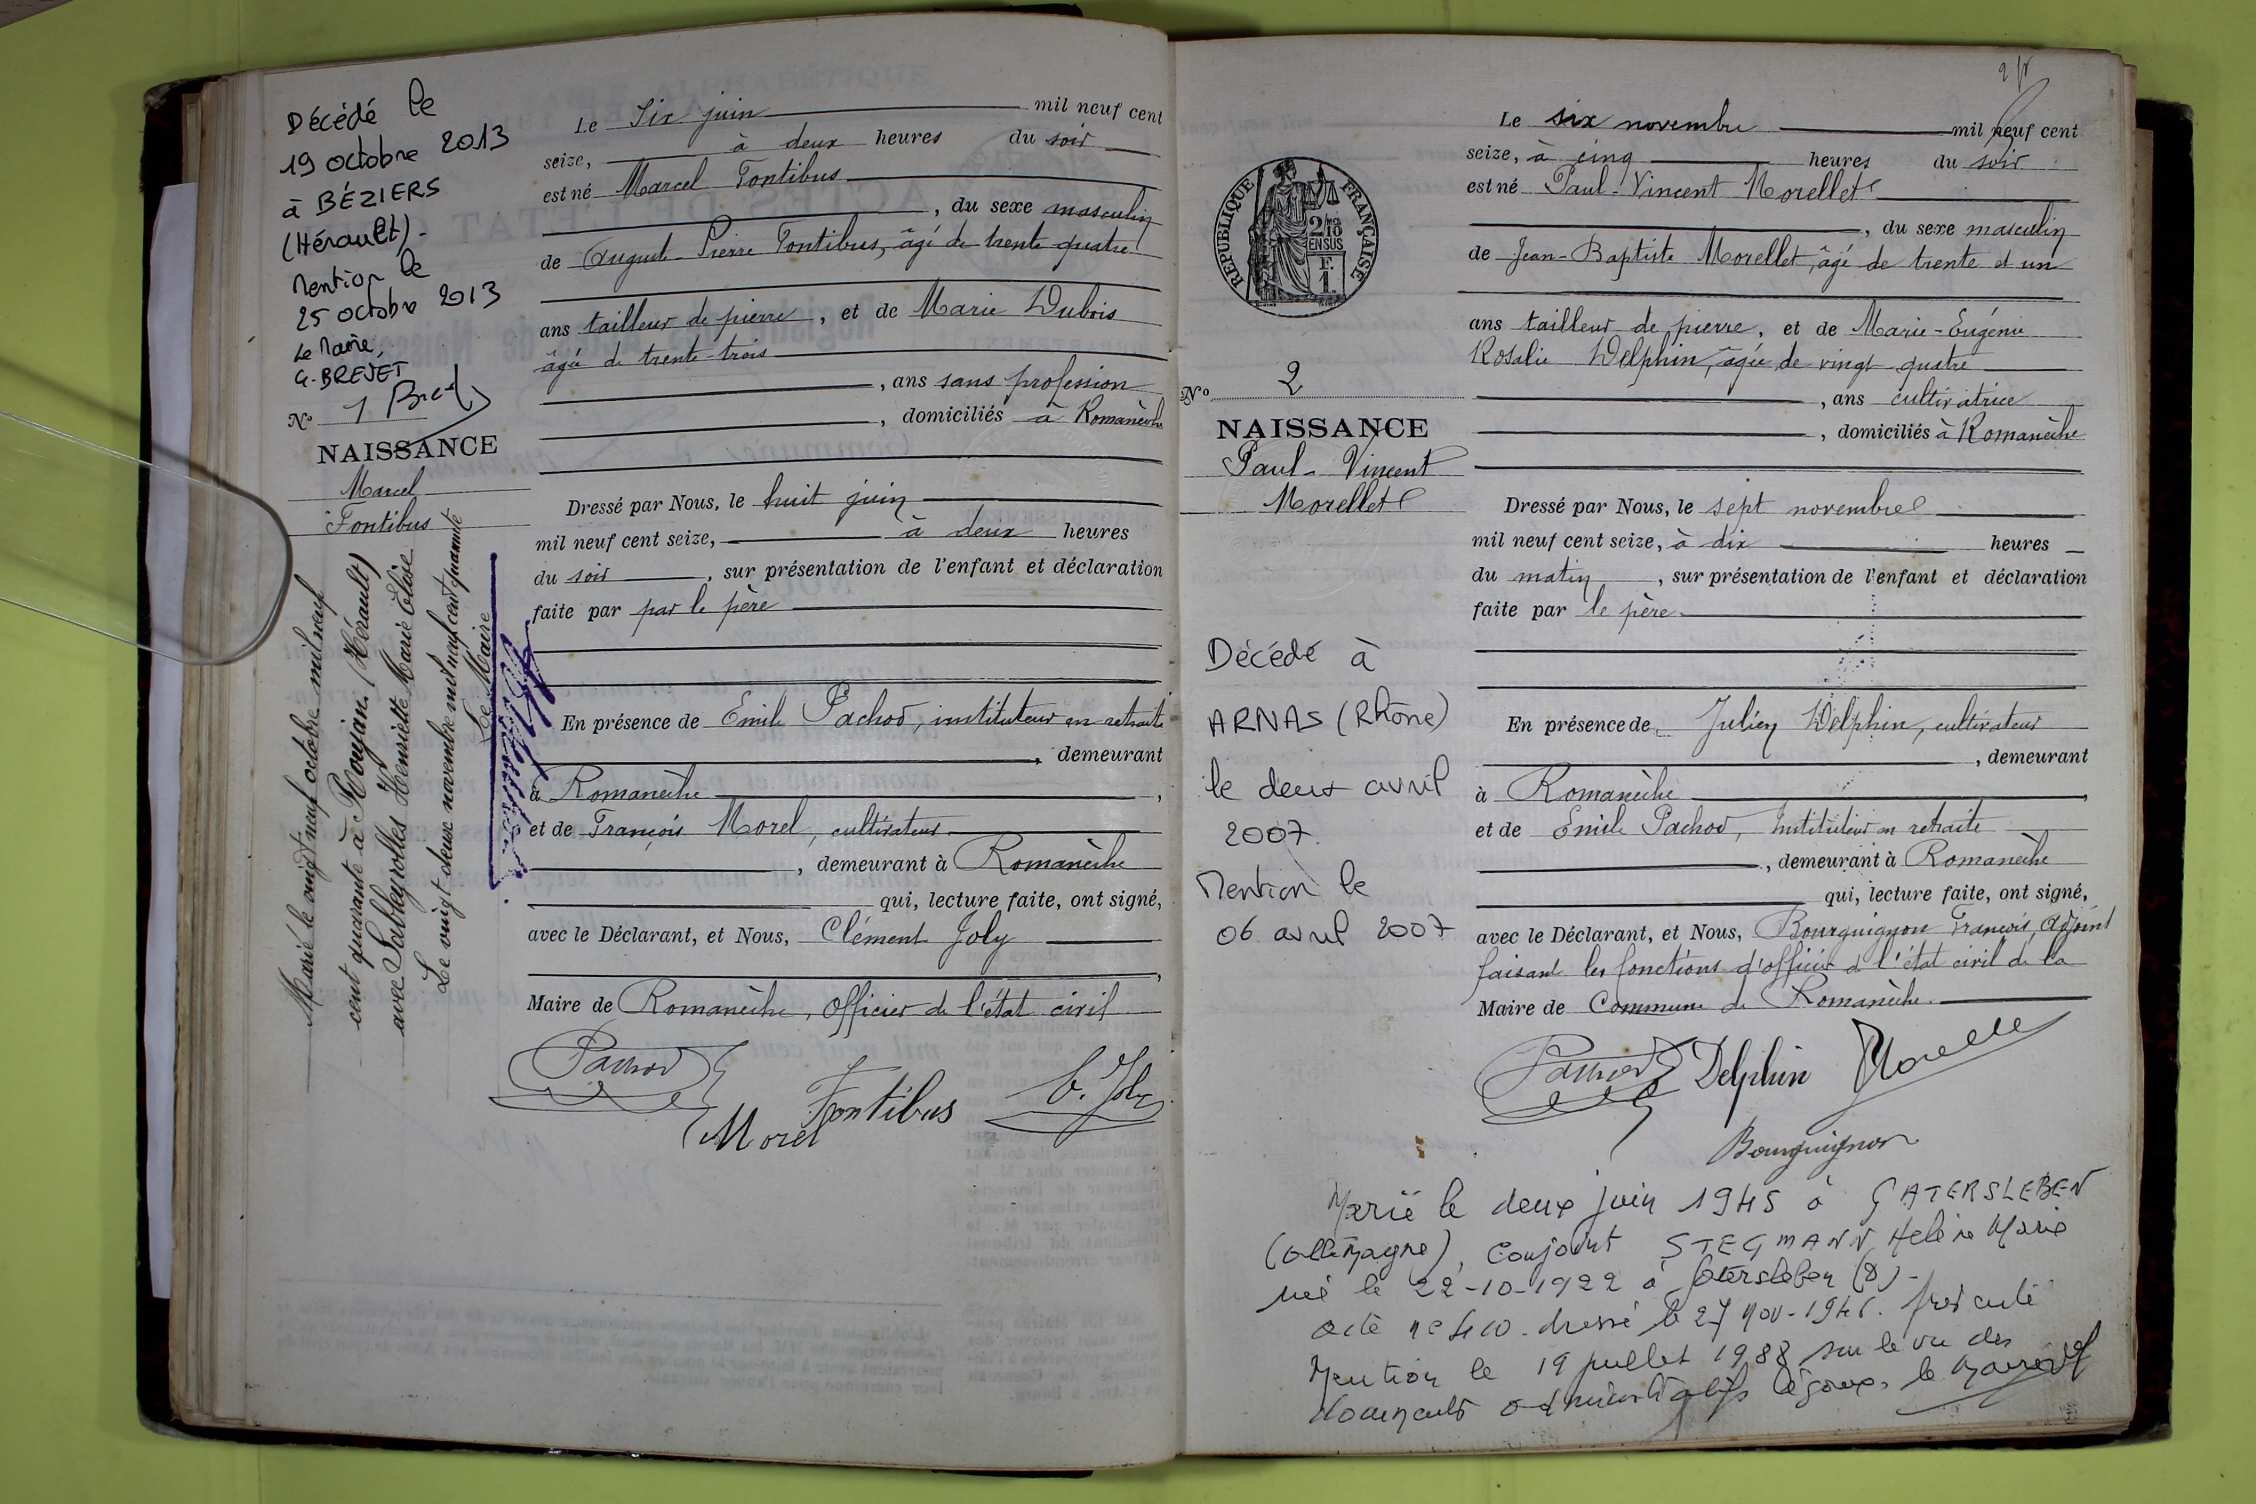 Décédé le
19 octobre 2013
à BÉZIERS
(Hérault).
Mention le
25 octobre 2013
Le Maire,
G. BREVET
No 1
NAISSANCE
Marcel
Fontibus
Marié le vingt neuf octobre mil neuf
cent quarante à Roujan (Hérault)
avec Sableyrolles Henriette Marie Elise
Le vingt deux novembre mil neuf cent quarante
Le Maire
Le Six juin mil neuf cent
seize, à deux heures du soir
est né Marcel Fontibus
, du sexe masculin
de Auguste Pierre Fontibus, âgé de trente quatre
ans tailleur de pierre, et de Marie Dubois
âgée de trente-trois
, ans sans profession
, domiciliés à Romanèche
Dressé par Nous, le huit juin
mil neuf cent seize, à deux heures
du soir, sur présentation de l'enfant et déclaration
faite par par le père
En présence de Emile Pachod, instituteur en retraite
, demeurant
à Romanèche,
et de François Morel, cultivateur
, demeurant à Romanèche
qui, lecture faite, ont signé,
avec le Déclarant, et Nous, Clément Joly
,
Maire de Romanèche, Officier de l'état civil
Pachod
Fontibus
C. Joly
Morel
RÉPUBLIQUE FRANÇAISE
2/10
EN SUS
F.
1.
No 2
NAISSANCE
Paul-Vincent
Morellet
Décédé à
ARNAS (Rhône)
le deux avril
2007.
Mention le
06 avril 2007
Le six novembre mil neuf cent
seize, à cinq heures du soir
est né Paul-Vincent Morellet
, du sexe masculin
de Jean-Baptiste Morellet, âgé de trente et un
ans tailleur de pierre, et de Marie-Eugénie
Rosalie Delphin, âgée de vingt-quatre
, ans cultivatrice
, domiciliés à Romanèche
Dressé par Nous, le sept novembre
mil neuf cent seize, à dix heures
du matin, sur présentation de l'enfant et déclaration
faite par le père
En présence de Julien Delphin, cultivateur
, demeurant
à Romanèche,
et de Emile Pachod, Instituteur en retraite
, demeurant à Romanèche
qui, lecture faite, ont signé,
avec le Déclarant, et Nous, Bourguignon François, Adjoint
faisant les fonctions d'officier de l'état civil de la
Maire de Commune de Romanèche.
Pachod Delphin Morellet
Bourguignon
Marié le deux juin 1945 à GATERSLEBEN
(Allemagne), conjoint STEGMANN Helène Marie
née le 22-10-1922 à Gatersleben (D)-
acte dressé le 27 nov-1946.
Mention le 19 juillet 1988 sur le vu des
documents administratifs légaux, le Maire